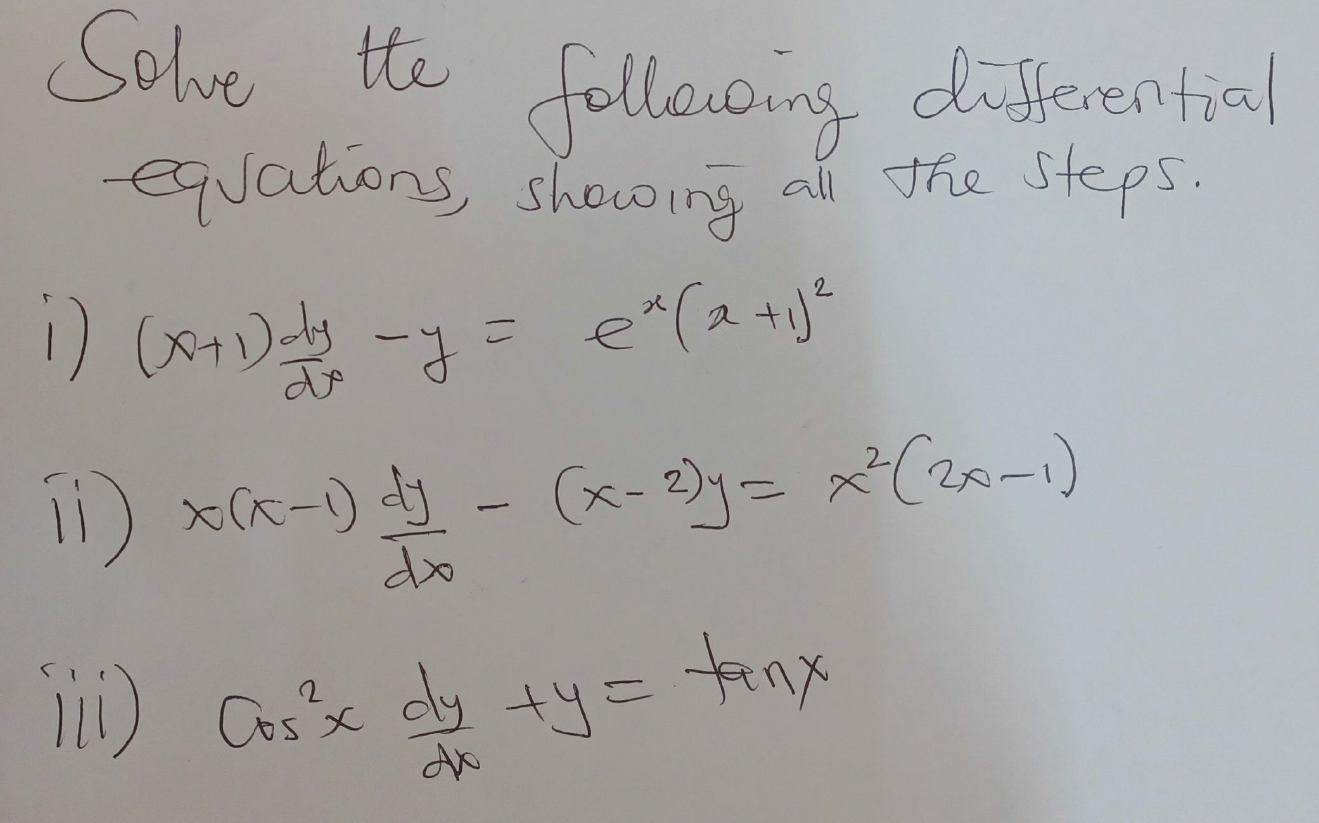 Solve the following differential
equations, showing all the steps.
i) (x+1) dy/dx - y = eˣ(x+1)²
ii) x(x-1) dy/dx - (x-2)y = x²(2x-1)
iii) Cos²x dy/dx + y = tanx